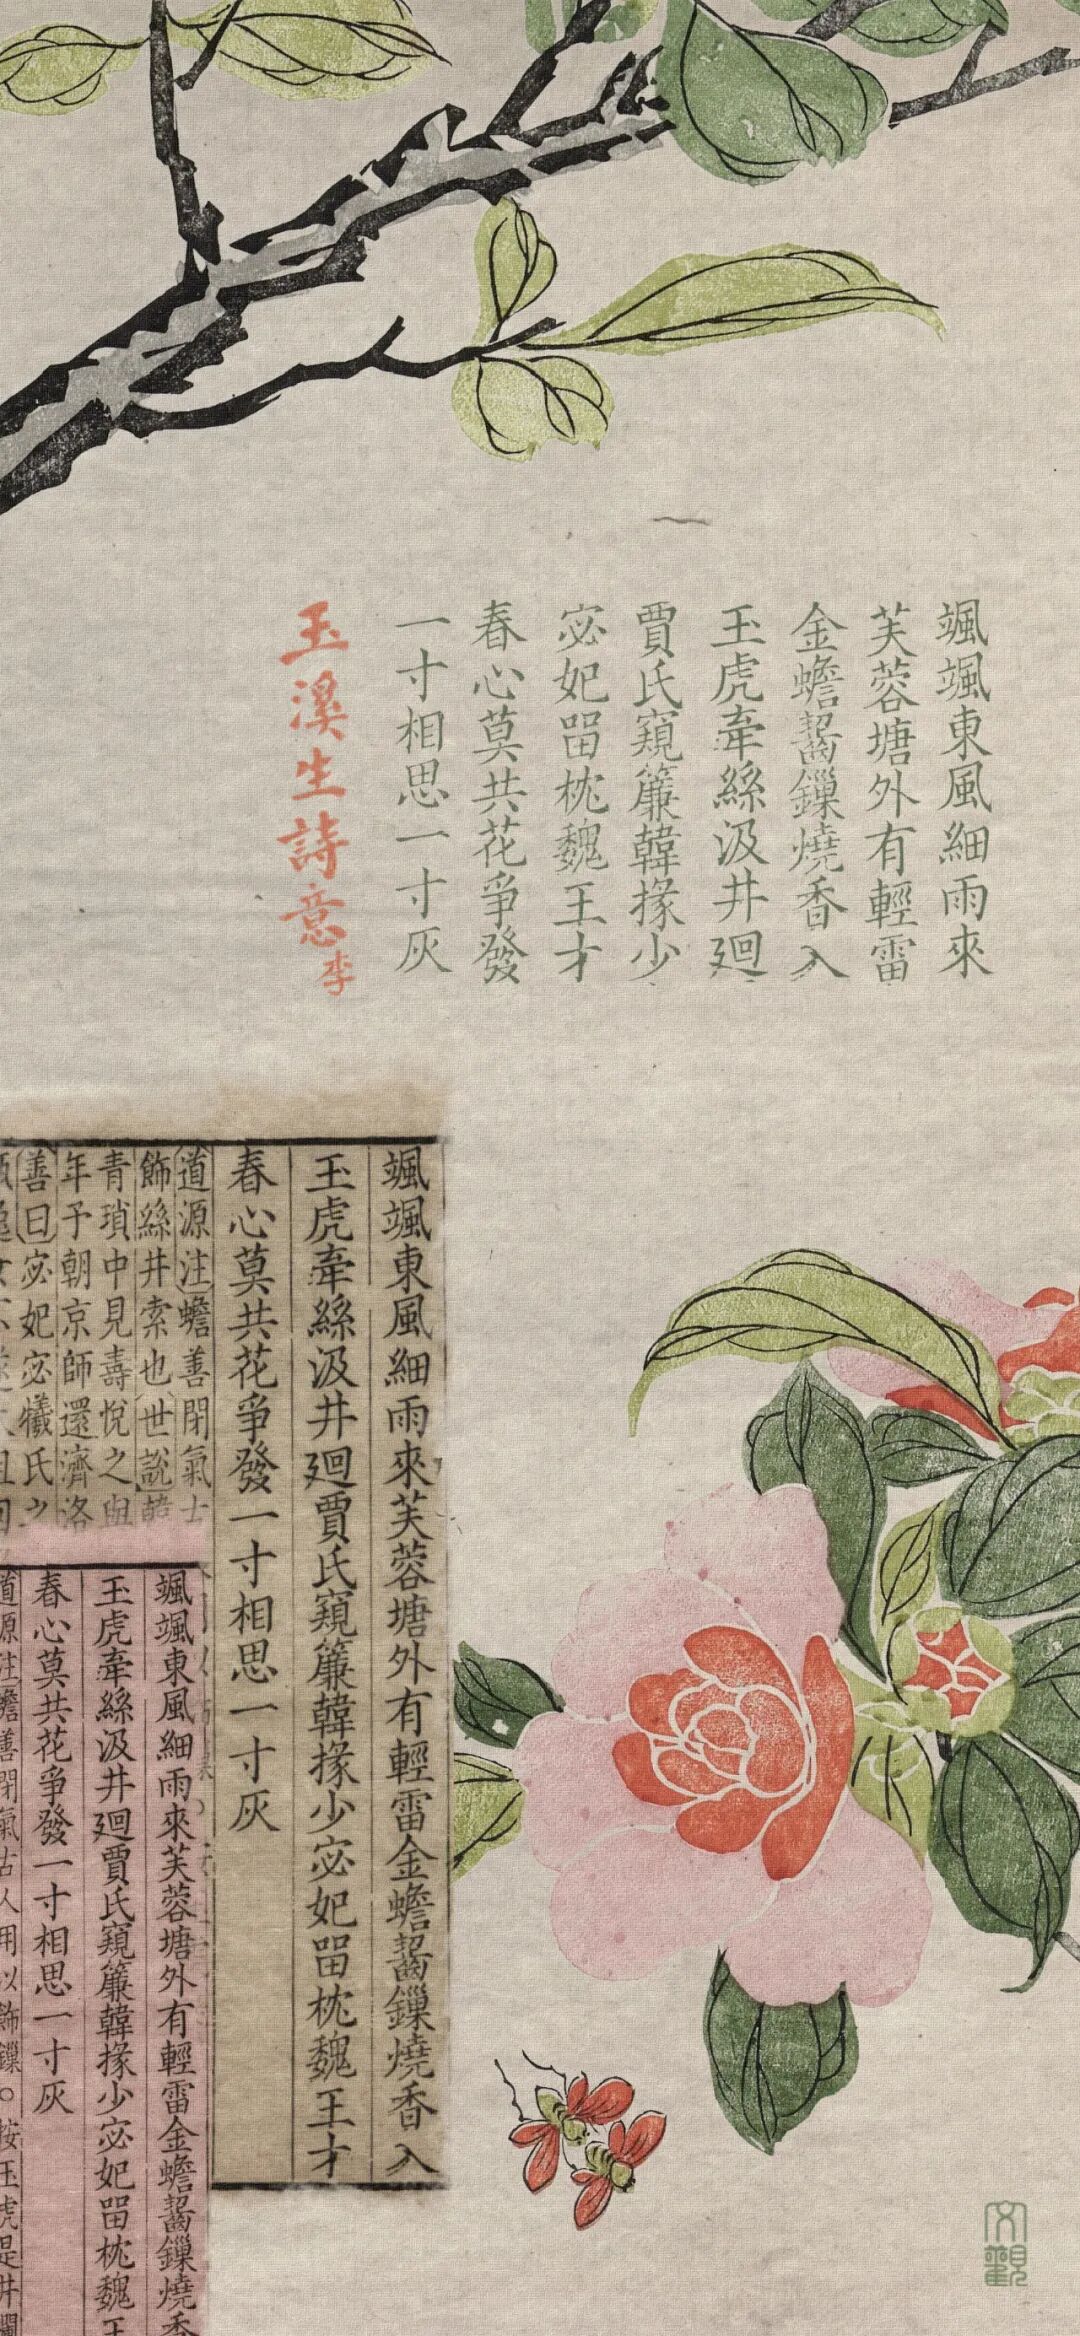 颯颯東風細雨來
芙蓉塘外有輕雷
金蟾齧鏁燒香入
玉虎牽絲汲井廻
賈氏窺簾韓掾少
宓妃畱枕魏王才
春心莫共花爭發
一寸相思一寸灰
玉溪生詩意
李
颯颯東風細雨來芙蓉塘外有輕雷金蟾齧鏁燒香入
玉虎牽絲汲井廻賈氏窺簾韓掾少宓妃畱枕魏王才
春心莫共花爭發一寸相思一寸灰
道源注蟾善閉氣
飾絲井索也世說韓
青瑣中見壽悅之與
年予朝京師還濟洛
善曰宓妃宓犧氏之
颯颯東風細雨來芙蓉塘外有輕雷金蟾齧鏁燒香
玉虎牽絲汲井廻賈氏窺簾韓掾少宓妃畱枕魏王
春心莫共花爭發一寸相思一寸灰
道源注蟾善閉氣古人用以飾鏁○按玉虎是井欄
文觀